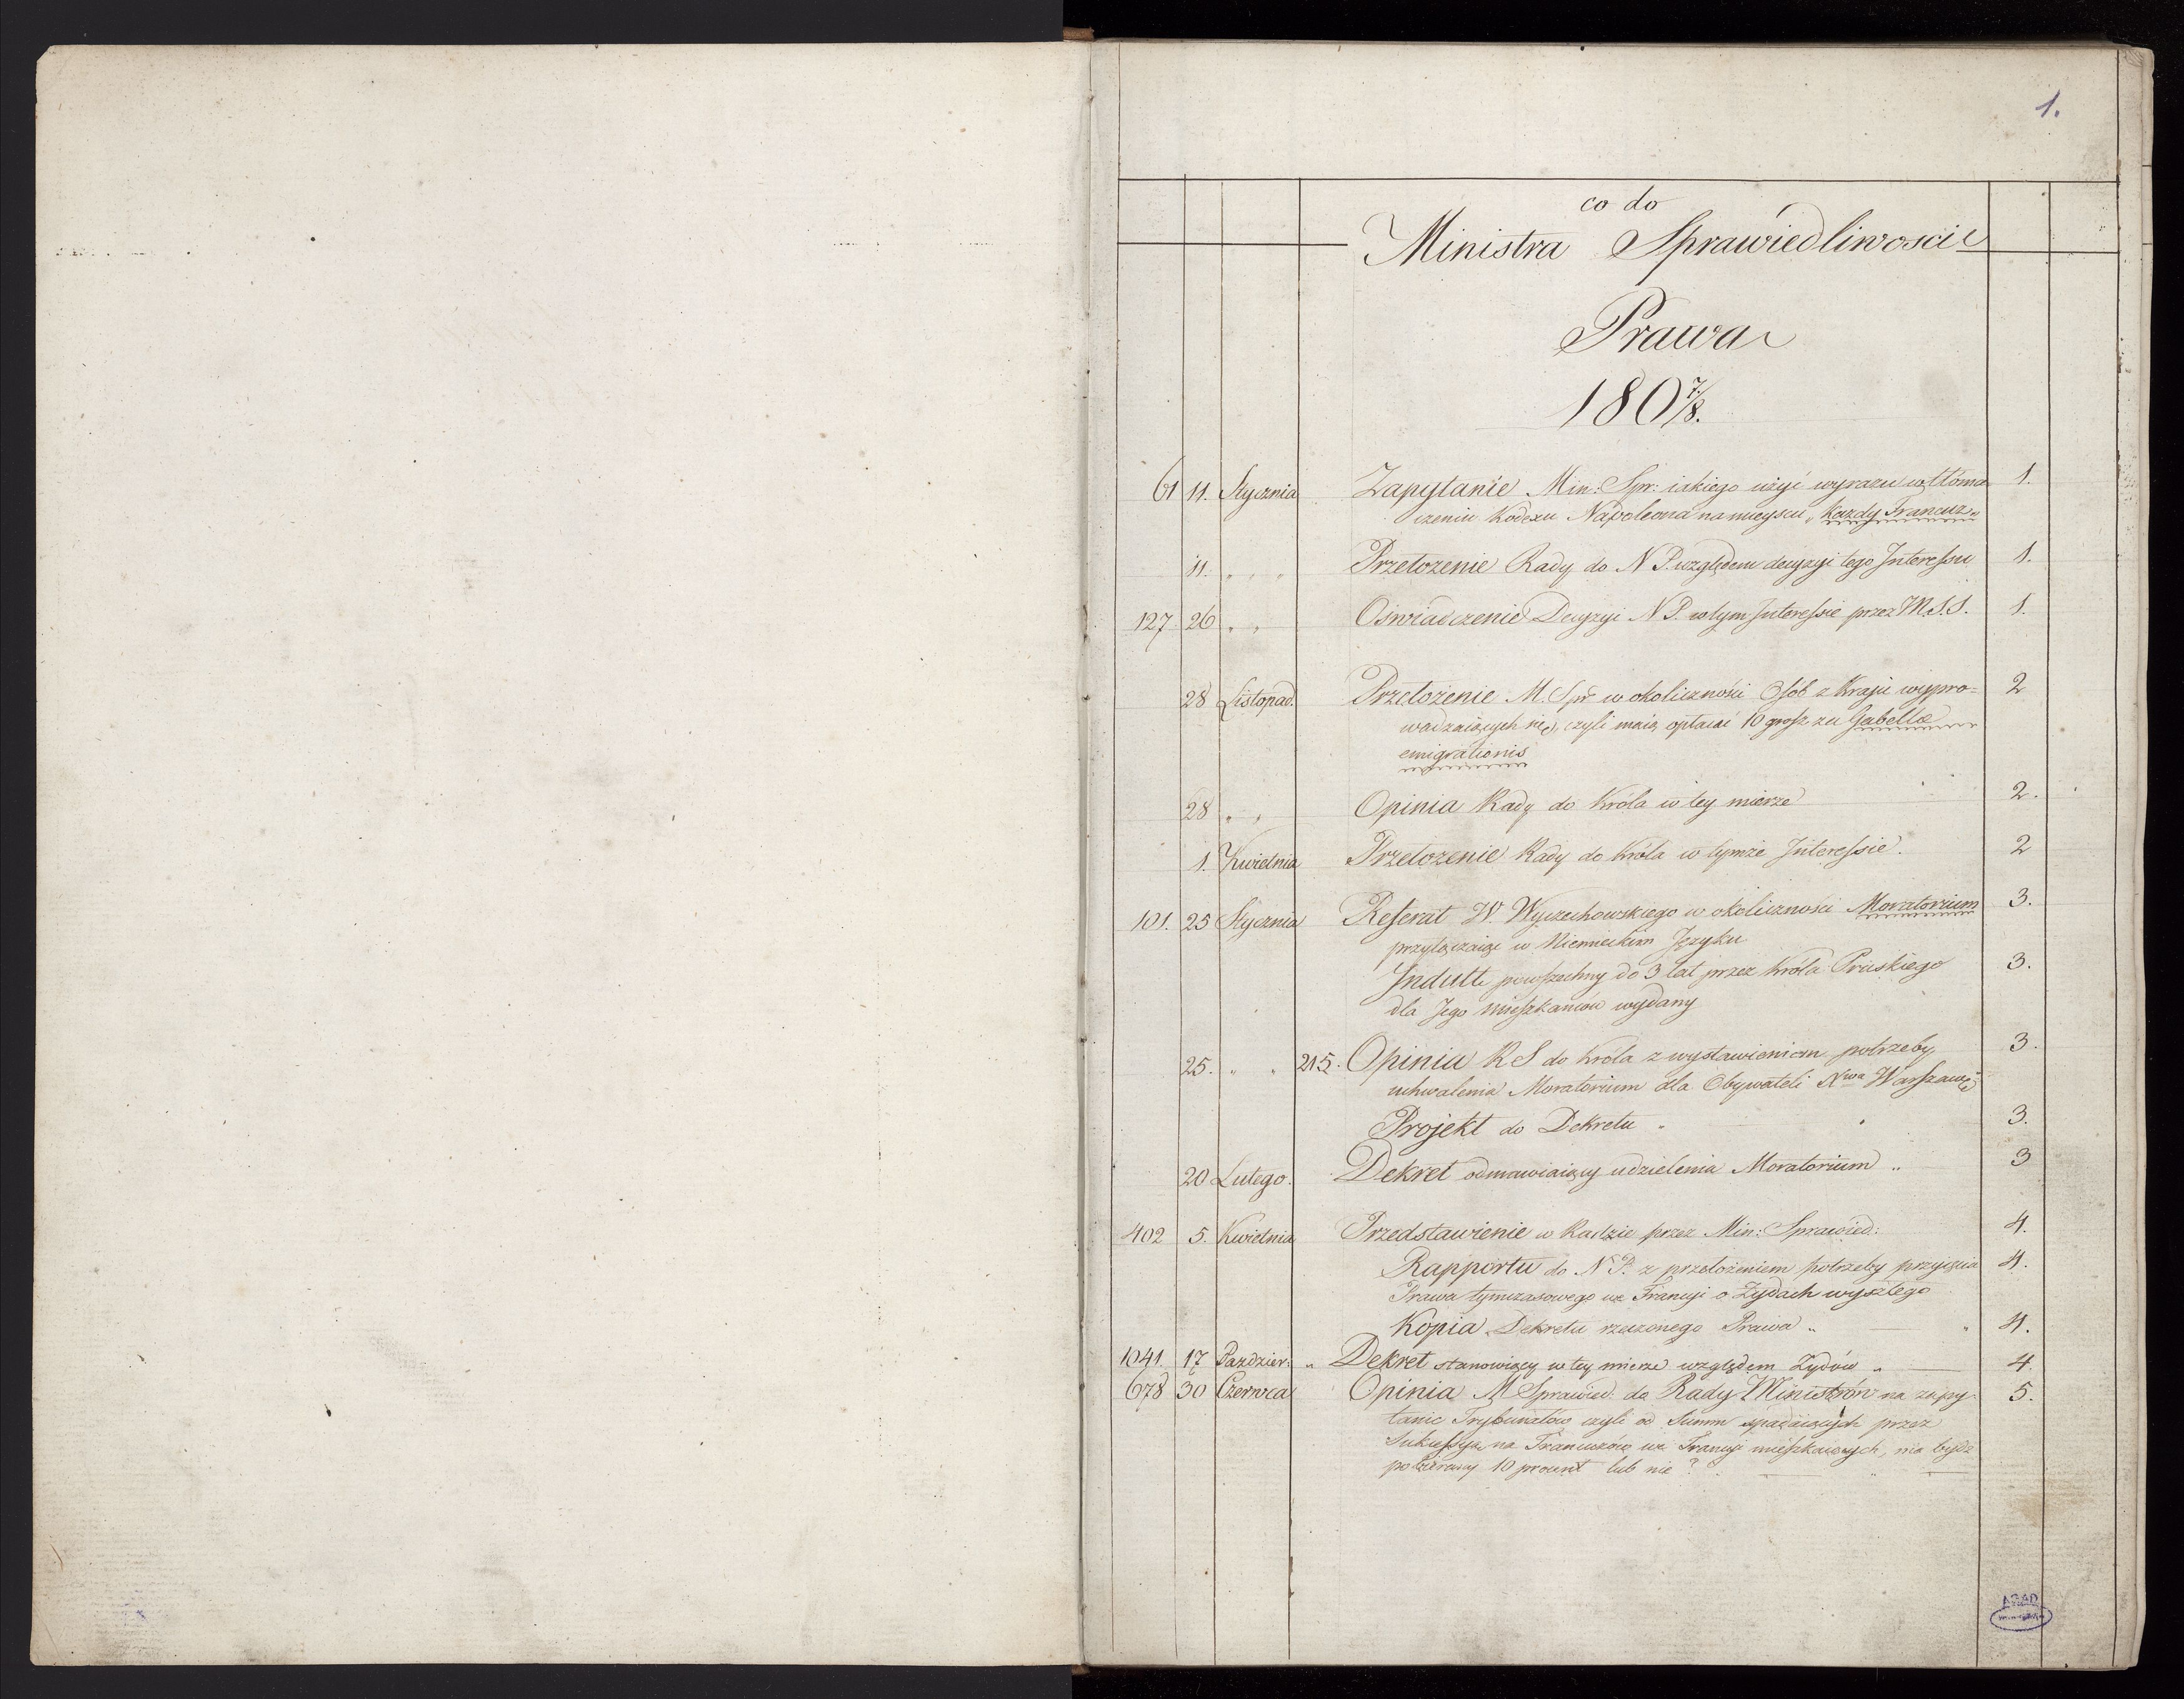 1.
co do
Ministra Sprawiedliwości
Prawa
180 7/8.
61 11. Stycznia Zapytanie Min: Spr: iakiego użyć wyrazu w tłóma 1.
czeniu Kodexu Napoleona na mieyscu „Każdy Francuz„
11. „ „ „ Przełożenie Rady do N P. względem decyzyi tego Interessu 1.
127 26 „ „ Oświadczenie Decyzyi N P. w tym Interessie przez M.S.S. 1.
28 Listopad. Przełożenie M. Spr w okoliczności Osób z Kraju wypro= 2
wadzaiących się, czyli maią opłacać 10 grosz za Gabella
emigrationis
28 „ „ Opinia Rady do Króla w tey mierze 2.
1. Kwietnia Przełożenie Rady do Króla w tymże Interessie. 2
101. 25 Stycznia Referat W. Wyczechowskiego w okoliczności Moratorium 3.
przyłączaiąc w Niemieckim Języku
Indult powszechny do 3 lat przez Króla Pruskiego 3.
dla Jego mieszkańców wydany
25. „ „ 215. Opinia R S do Króla z wystawieniem potrzeby 3.
uchwalenia Moratorium dla Obywateli Xwa Warszaws
Projekt do Dekretu „ 3.
20 Lutego. Dekret odmawiaiący udzielenia Moratorium „ 3
402 5. Kwietnia Przedstawienie w Radzie przez Min: Sprawied: 4.
Rapportu do N P. z przełożeniem potrzeby przyięcia 4.
Prawa tymczasowego we Francyi o Żydach wyszłego
Kopia Dekretu rzeczonego Prawa „ „ 4.
1041. 17 Pazdzier: „ Dekret stanowiący w tey mierze względem Żydów „ 4.
678 30 Czerwca Opinia M Sprawied: do Rady Ministrów na zapy- 5.
tanie Trybunałów czyli od Summ spadaiących przez
Sukcessyą na Francuzów we Francyi mieszkaiących, ma bydź
pobierany 10 procent lub nie?
AGAD